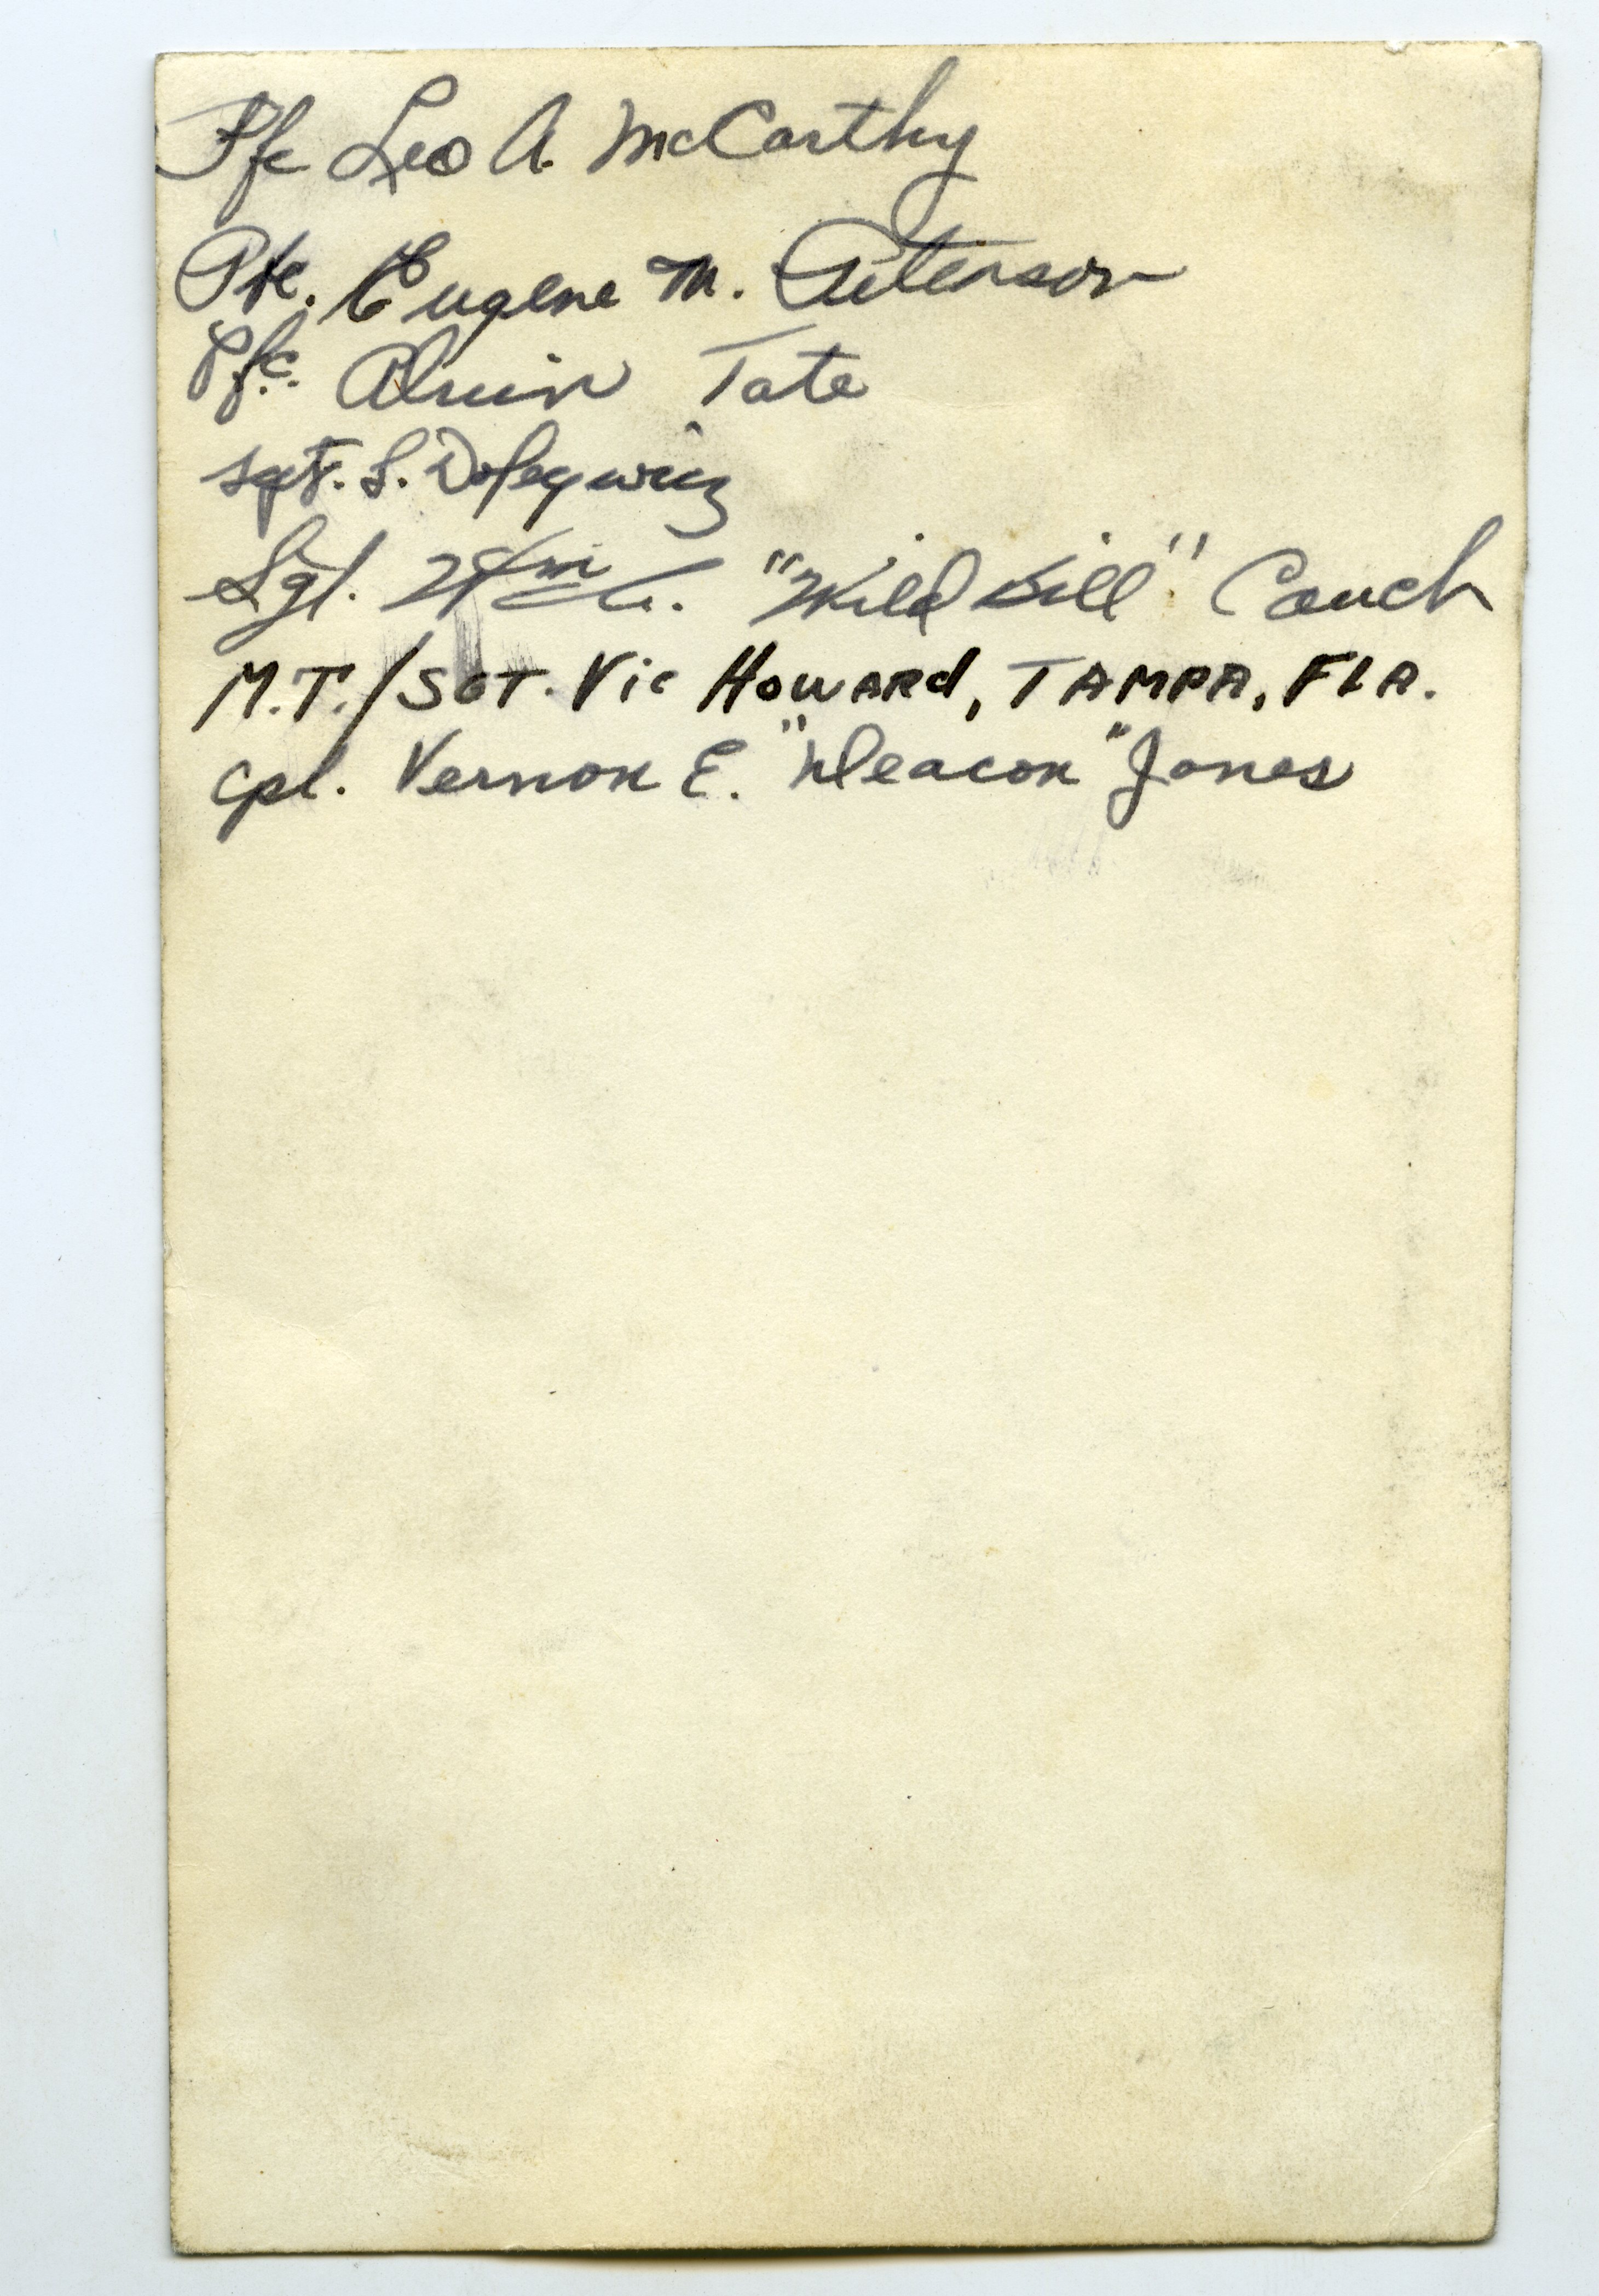 Pfc Leo A. McCarthy
Pfc. Eugene M. Peterson
Pfc. Alvin Tate
Sgt. S.
Sgt. Wm "Wild Bill" Couch
M.T./SGT. Vic HOWARd, TAMPA, FLA.
Cpl. Vernon E. "Deacon" Jones